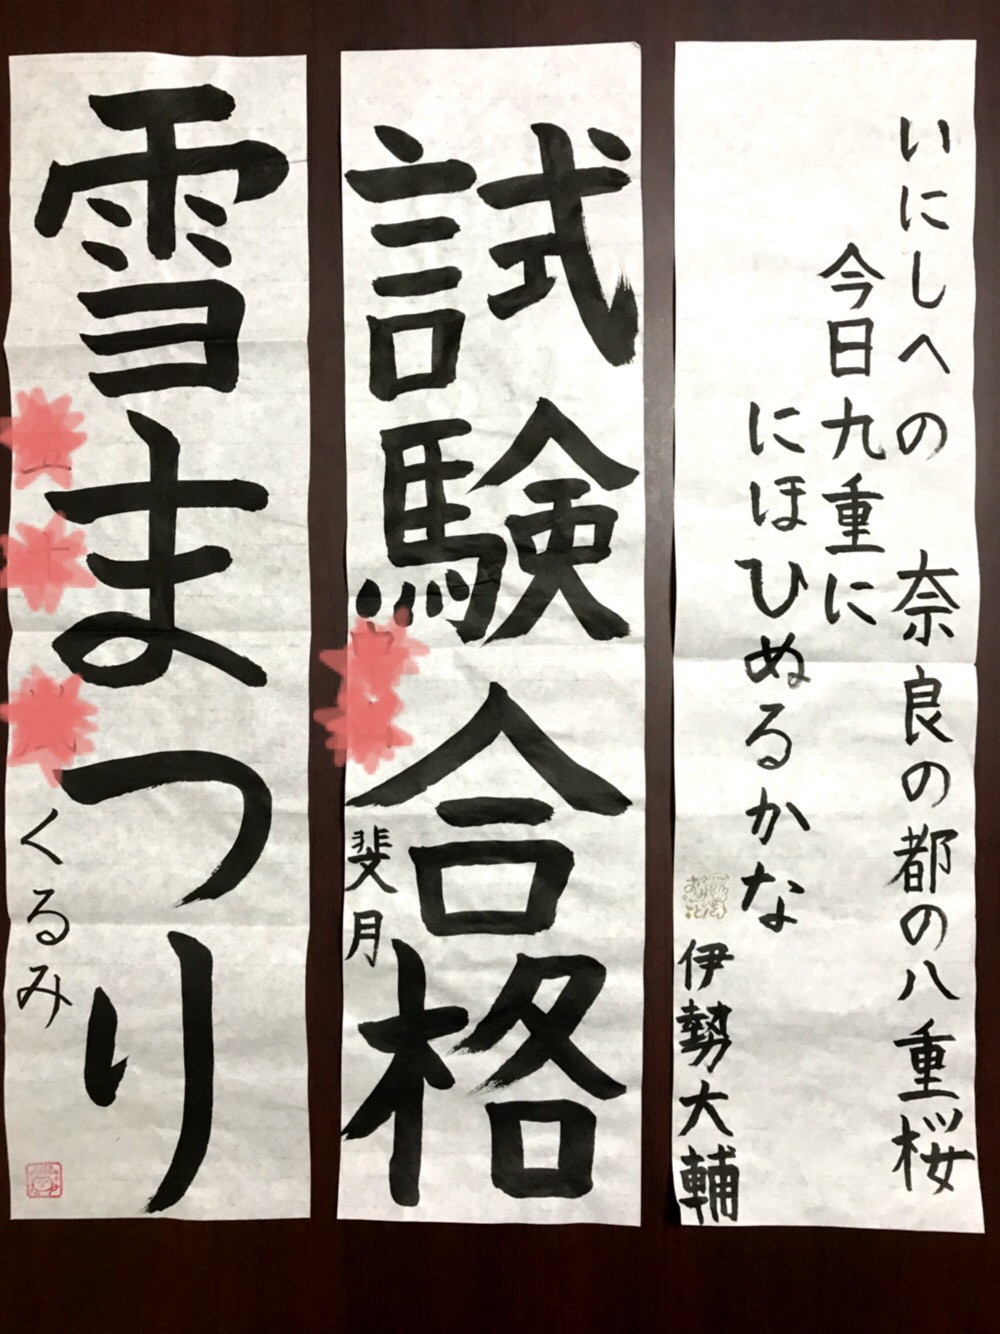 いにしへの 奈良の都の八重桜
今日九重に
にほひぬるかな
伊勢大輔
試験合格
斐月
雪まつり
くるみ